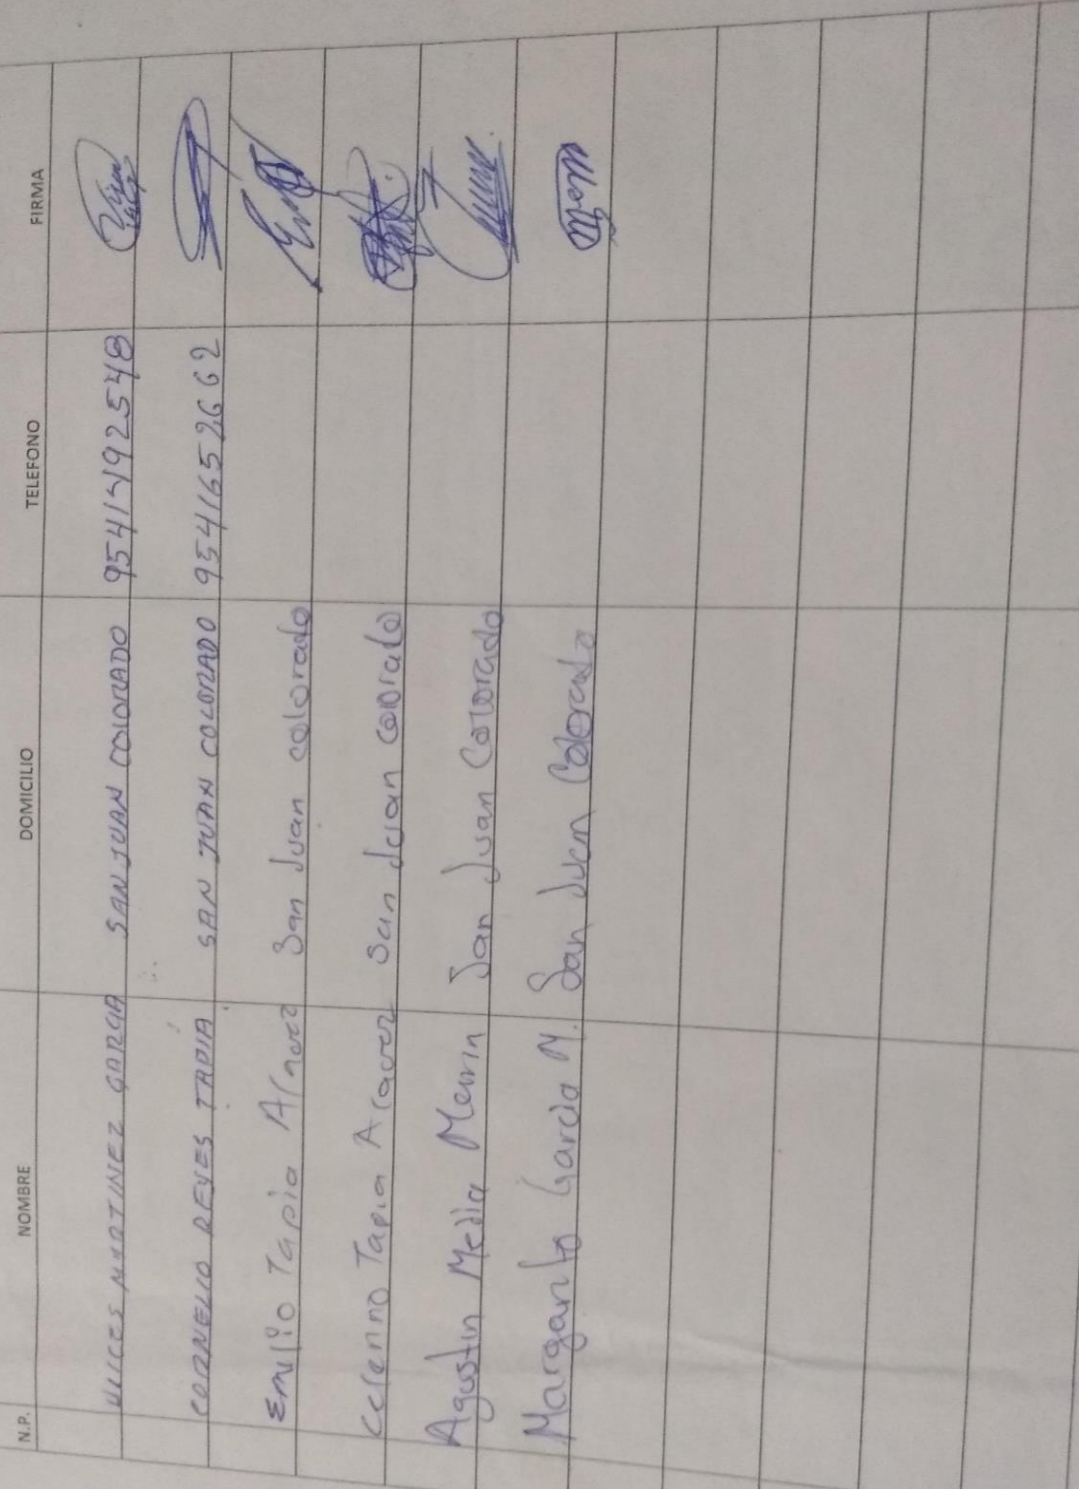 N.P. NOMBRE DOMICILIO TELEFONO FIRMA
ULICES MARTINEZ GARCIA SAN JUAN COLORADO 9541492548
CORNELIO REYES TAPIA SAN JUAN COLORADO 9541652662
Emilio Tapia San Juan colorado
Tapia San Juan colorado
Agustin Mejia San Juan Colorado
Margarito Garcia M. San Juan Colorado